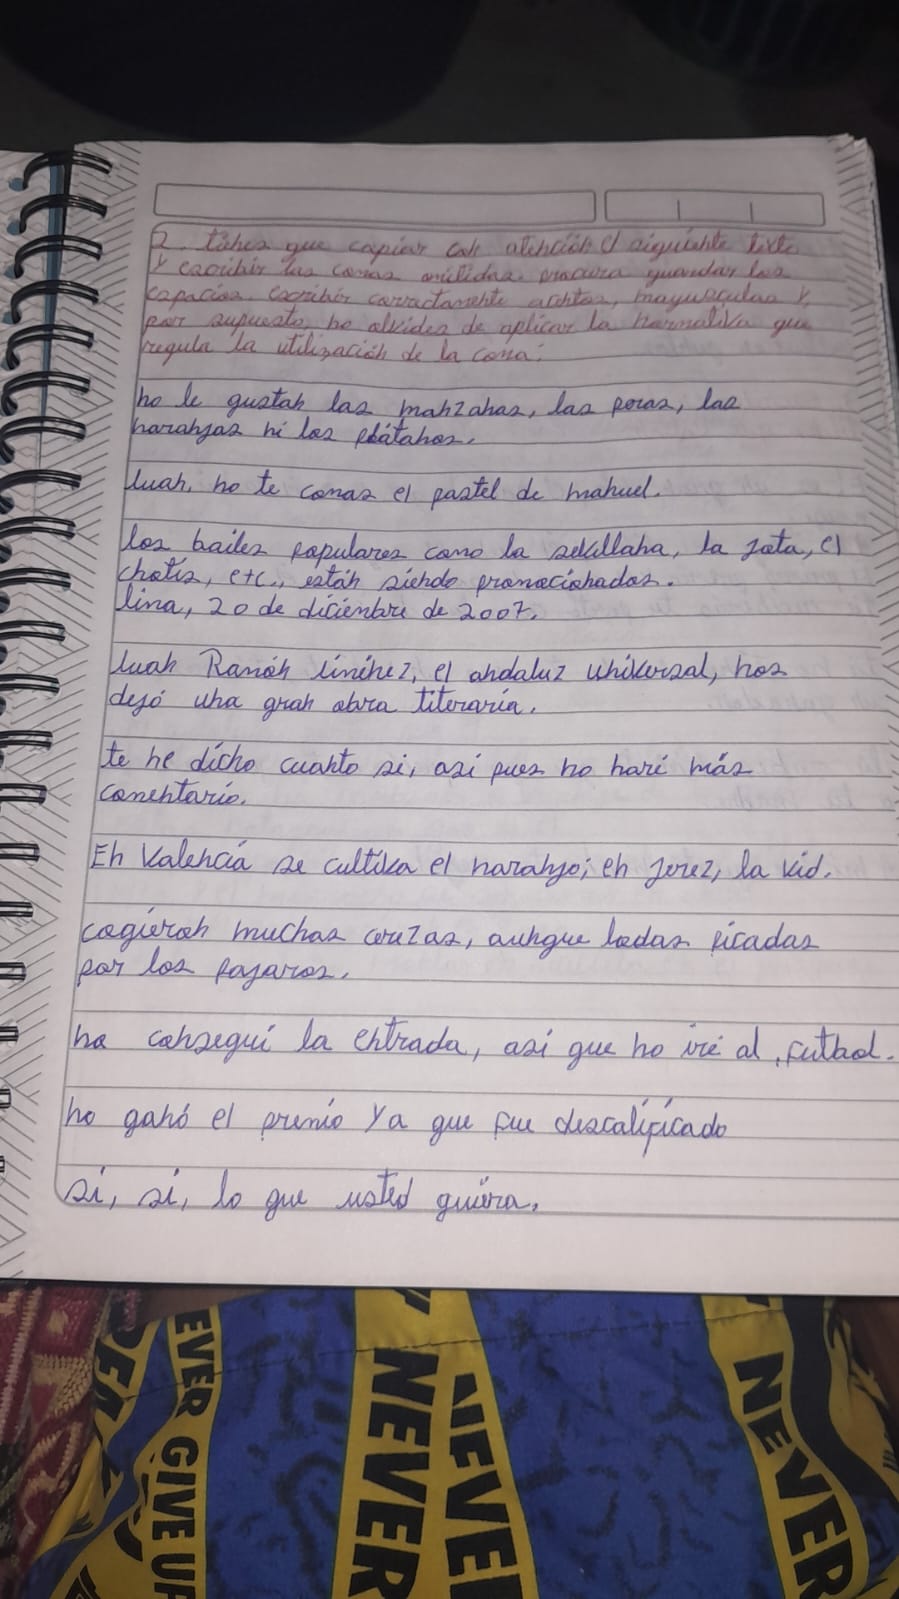 2. tienes que copiar con atención el siguiente texto
y escribir las comas omitidas. procura guardar los
espacios. escribir correctamente acentos, mayusculas y,
por supuesto, no olvides de aplicar la normativa que
regula la utilización de la coma:
no le gustan las manzanas, las peras, las
naranjas ni los plátanos.
Juan, no te comas el pastel de manuel.
los bailes populares como la sevillana, la jota, el
chotis, etc., están siendo promocionados.
lima, 20 de diciembre de 2007.
Juan Ramón Jiménez, el andaluz universal, nos
dejó una gran obra literaria.
te he dicho cuanto sé, así pues no haré más
comentario.
En Valencia se cultiva el naranjo; en Jerez, la vid.
cogieron muchas cerezas, aunque todas picadas
por los pajaros.
no conseguí la entrada, asi que no iré al futbol.
no ganó el premio ya que fue descalificado
si, si, lo que usted quiera.
EVER GIVE UP
NEVER
NEVER
NEVER